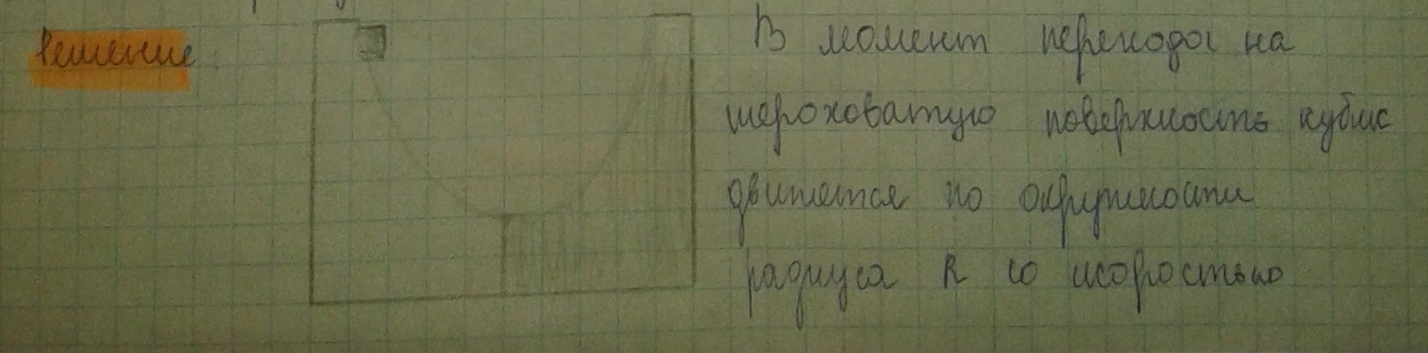 Решение:
В момент перехода на
шероховатую поверхность кубик
движется по окружности
радиуса R со скоростью